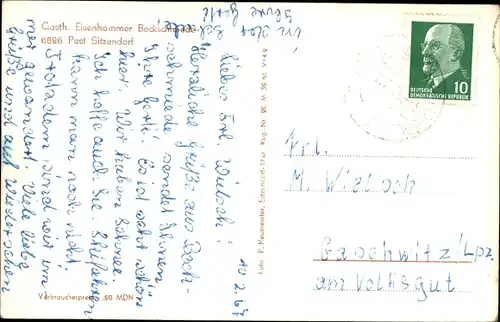 Gasth. Eisenhammer Backschmiede
6826 Post Sitzendorf
in der
10.2.67
Liebes Frl. Wiesoch!
Herzliche Grüße aus Back-
schmiede sendet Ihnen
Ihre Gerti. Es ist sehr schön
hier. Wir haben Schnee.
Ich hoffe auch Sie. Skifahren
kann man noch nicht
Trotzdem sind wir im-
mer gewandert. Viele liebe
Grüße und auf Wiedersehen
Verbraucherpreis -.20 MDN
Foto: P. Neumeister, Sitzendorf-Thür. Reg.-Nr.
10
DEUTSCHE
DEMOKRATISCHE REPUBLIK
Frl.
M. Wiesoch
Gaschwitz/Lpz.
am Volksgut